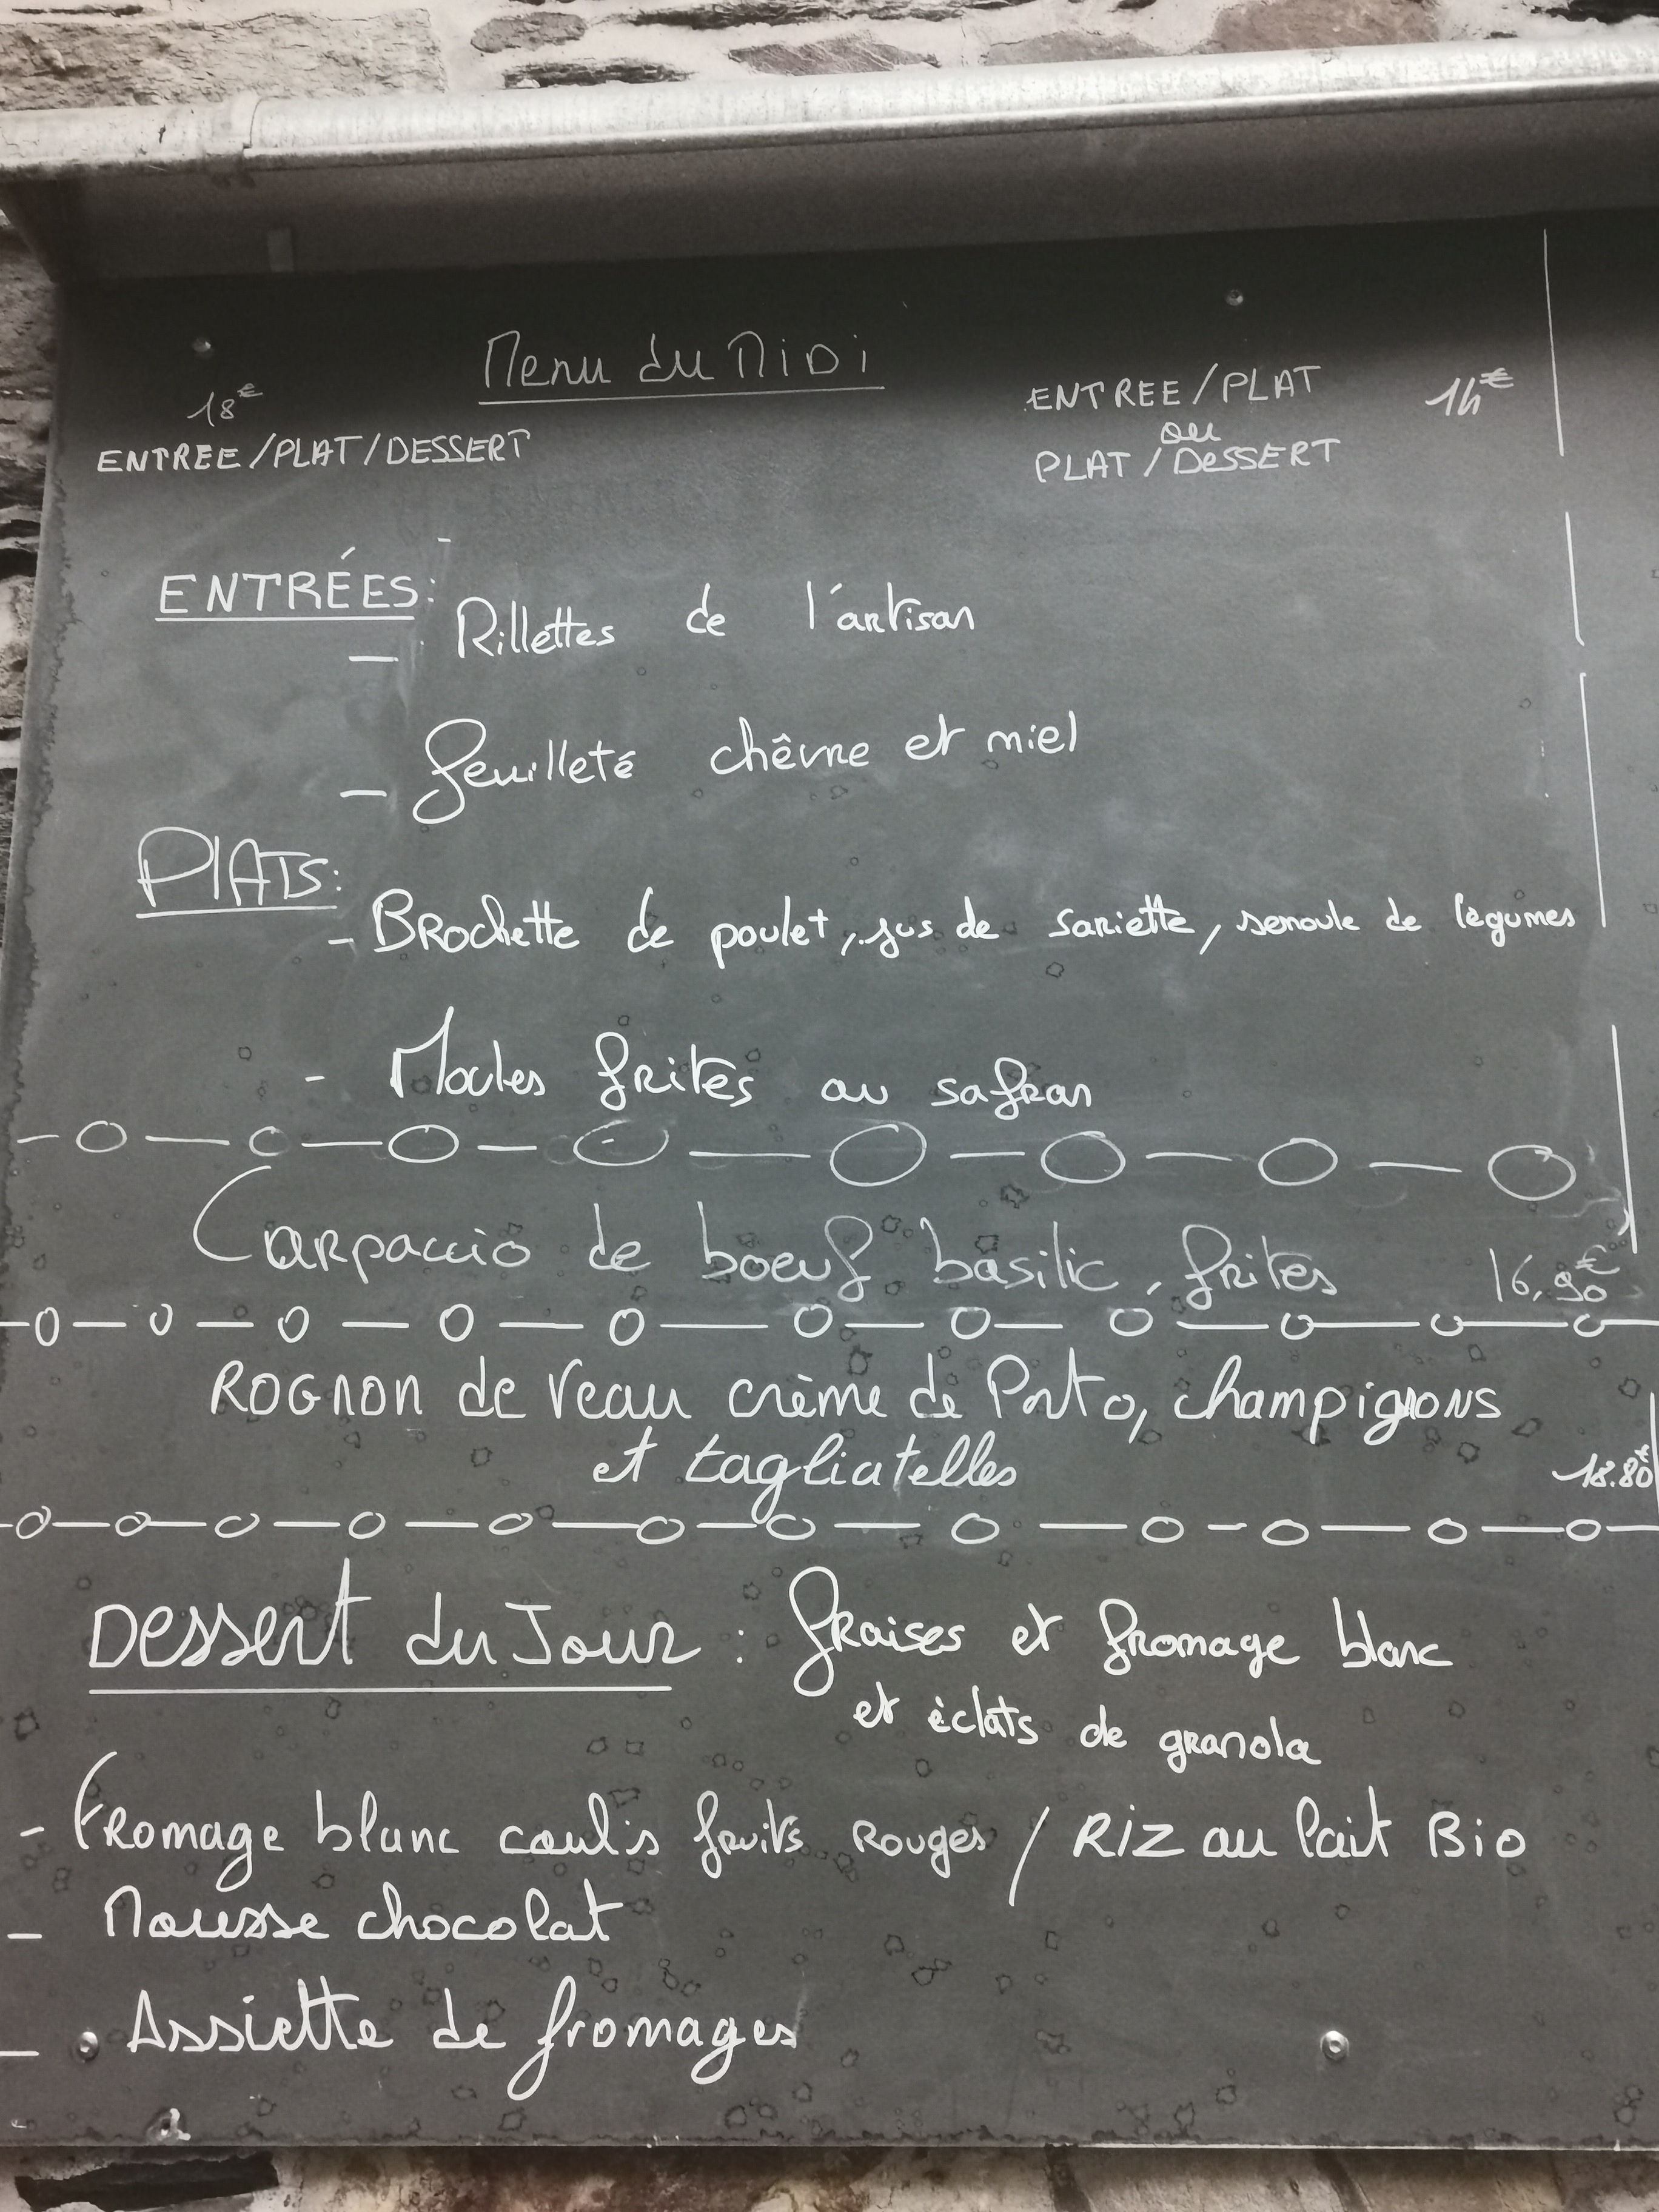 Menu du MiDi
18€
ENTREE/PLAT/DESSERT
ENTREE/PLAT 14€
ou
PLAT/DeSSERT
ENTRÉES:
- Rillettes de l'artisan
- feuilleté chêvre et miel
PlATS:
- BRochette de poulet, jus de sariette, semoule de légumes
- Moules frites au safran
Carpaccio de boeuf basilic, frites 16,90€
ROGNON de veau crème de Porto, champignons
et tagliatelles 18.80€
Dessert du Jour : fraises et fromage blanc
et éclats de granola
- Fromage blanc coulis fruits Rouges / RIZ au lait Bio
- Mousse chocolat
- Assiette de fromages